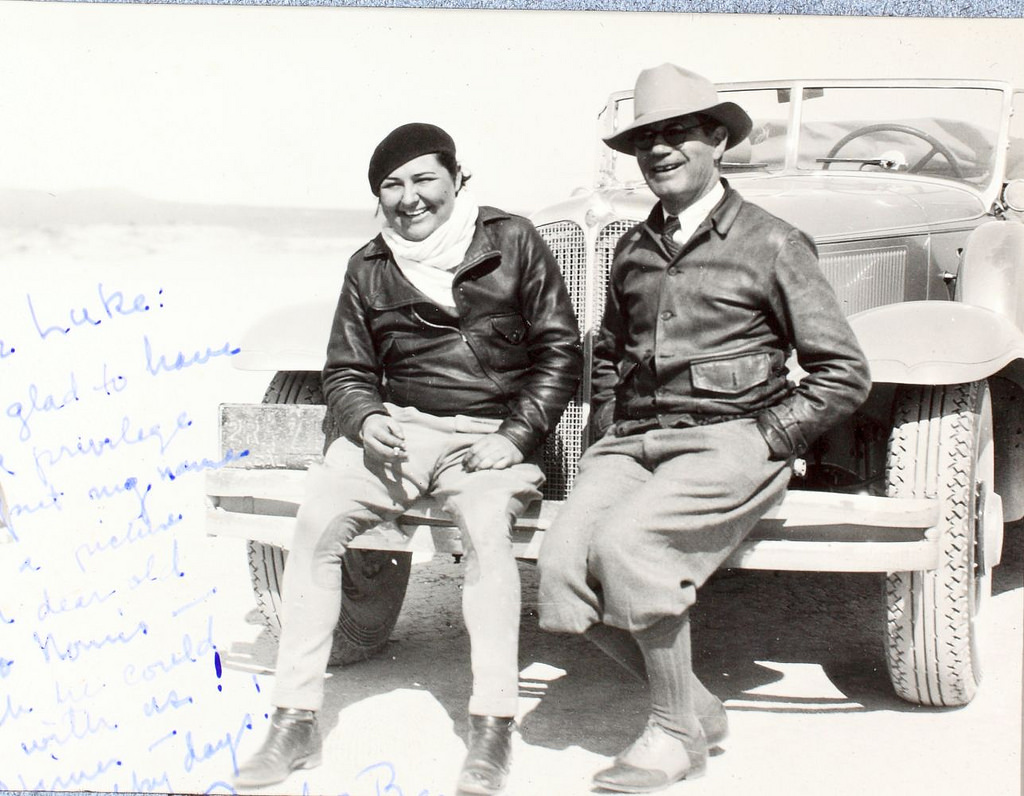 Luke:
glad to have
privilege
put my name
a picture
dear old
Norris —
he could
with us!
days!